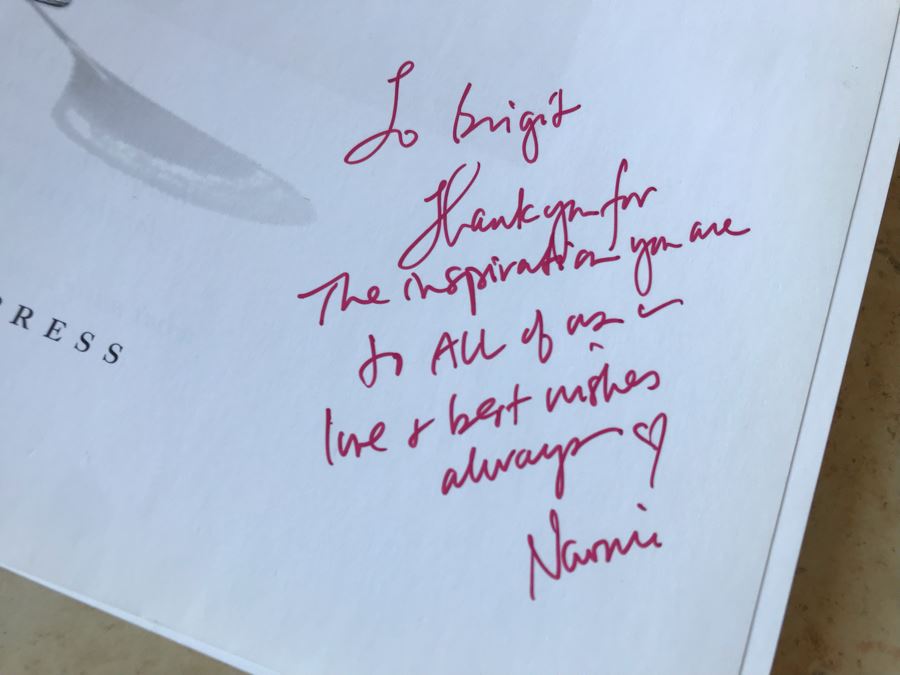 RESS
To Brigit
Thank you for
The inspiration you are
to ALL of us ~
love & best wishes
always ♡
Naomi